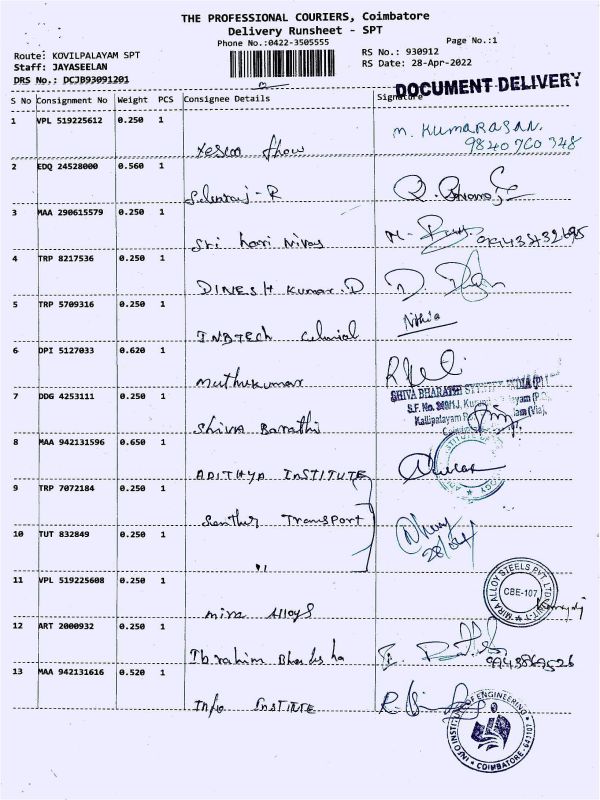 THE PROFESSIONAL COURIERS, Coimbatore
Delivery Runsheet - SPT
Phone No.:0422-3505555
Page No.:1
Route: KOVILPALAYAM SPT
RS No.: 930912
Staff: JAYASEELAN
RS Date: 28-Apr-2022
DRS No.: DCJB93091201
DOCUMENT DELIVERY
S No Consignment No Weight PCS Consignee Details Signature
1 VPL 519225612 0.250 1
M. KUMARASAN.
9840760348
2 EDQ 24528000 0.560 1
Selvaraj-R
3 MAA 290615579 0.250 1
Sri hari Nivas
4 TRP 8217536 0.250 1
DINESH Kumar.D
5 TRP 5709316 0.250 1 Nithia
6 DPI 5127033 0.620 1
Muthukumar
SHIVA BHARATHI INDIA (P)
7 DDG 4253111 0.250 1
Shiva Barathi
8 MAA 942131596 0.650 1
ADITHYA INSTITUTE
9 TRP 7072184 0.250 1
Transport
10 TUT 832849 0.250 1
28/04/
11 VPL 519225608 0.250 1
MIRA ALLOY STEELS PVT LTD UNIT-1
CBE-107
Mira Alloys
12 ART 2000932 0.250 1
Ibrahim
9943869526
13 MAA 942131616 0.520 1
Info INSTITUTE
INFO INSTITUTE OF ENGINEERING
COIMBATORE-641107